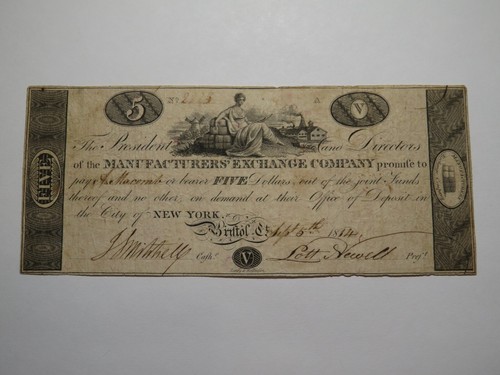 5
No.
A
V
The President and Directors
of the MANUFACTURERS' EXCHANGE COMPANY promise to
pay or bearer FIVE Dollars, out of the joint Funds
thereof and no other, on demand at their Office of Deposit in
the City of NEW YORK,
Bristol, Ct. Sept 5th 1814.
Cash.r
V
Lott Newell Pres.t